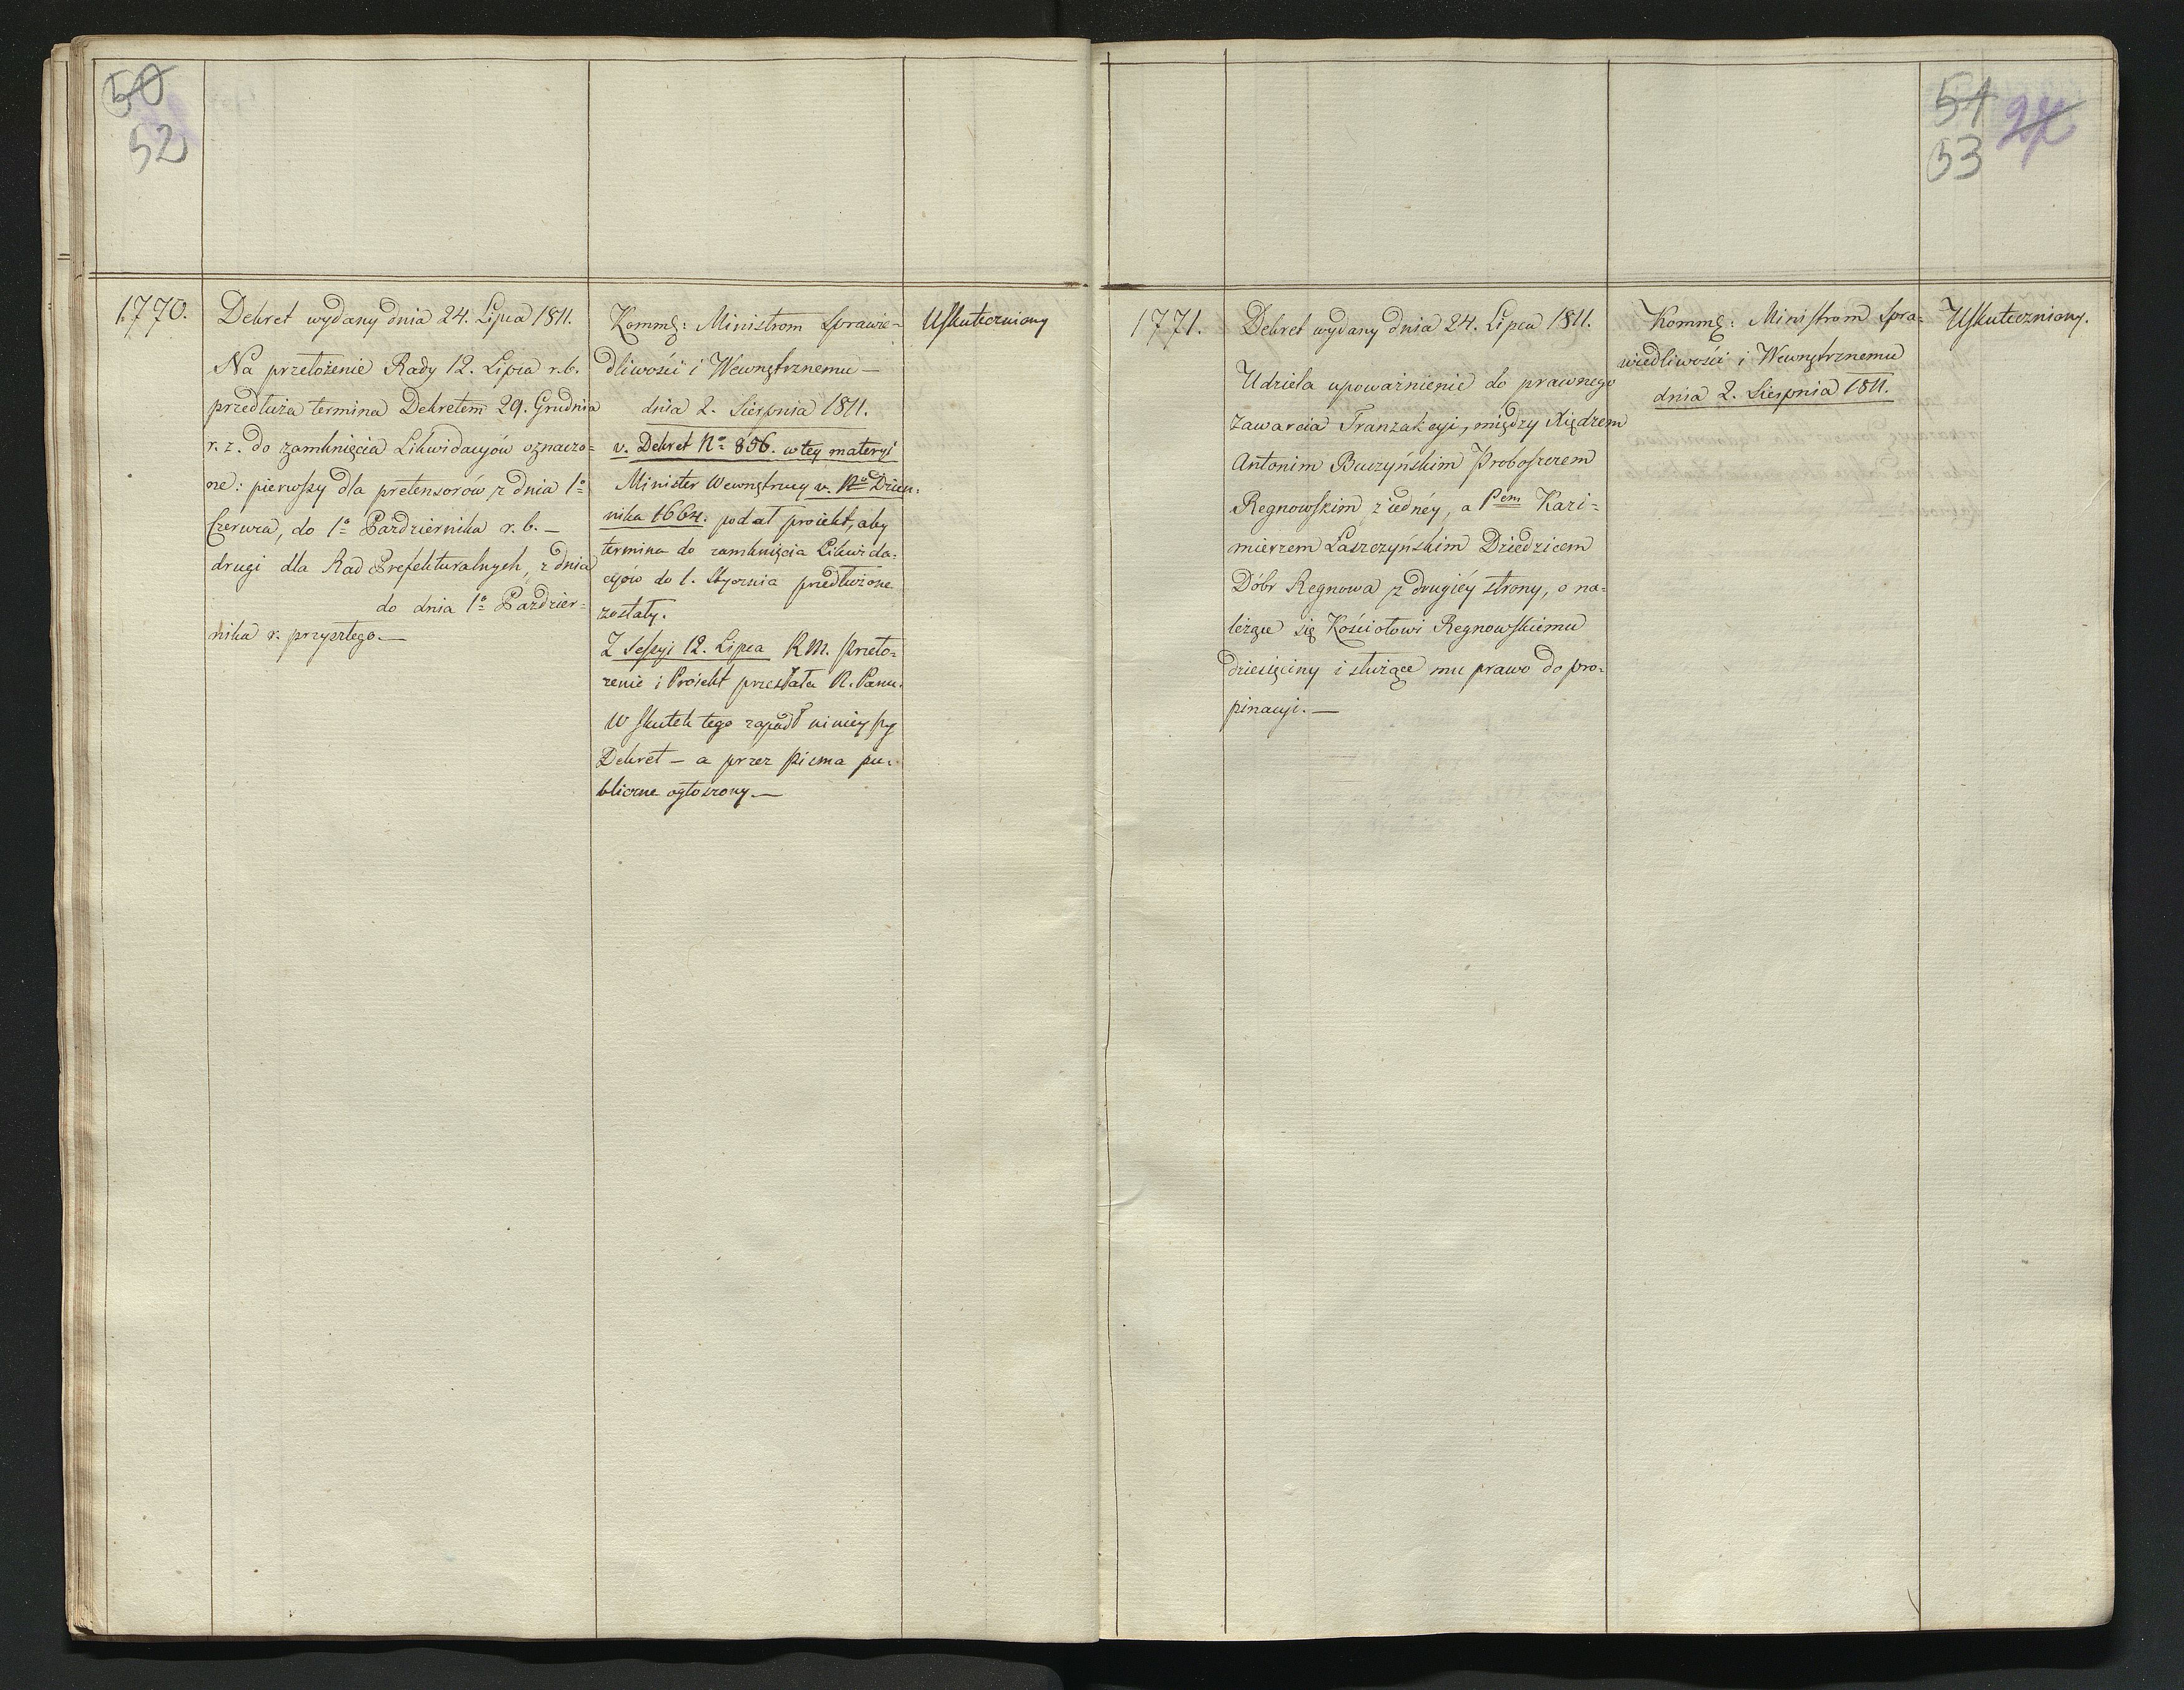 50
52
1770.
Dekret wydany dnia 24. Lipca 1811.
Na przełożenie Rady 12. Lipca r. b.
przedłuża termina Dekretem 29. Grudnia
r. z. do zamknięcia Likwidacyów oznaczo=
ne: pierwszy dla pretensorów z dnia 1º
Czerwca, do 1º Października r. b. —
drugi dla Rad Prefekturalnych, z dnia
do dnia 1º Paździer=
nika r. przyszłego. —
Kommę: Ministrom Sprawie=
dliwości i Wewnętrznemu —
dnia 2. Sierpnia 1811.
v. Dekret Nº 856. w tey materyi
Minister Wewnętrzny v. Nº Dzien=
nika 1664. podał proiekt, aby
termina do zamknięcia Likwida=
cyów do 1. Stycznia przedłużone
zostały.
Z Sessyi 12. Lipca R. M. Przeło=
żenie i Proiekt przesłała N. Panu.
W skutek tego zapadł ninieyszy
Dekret — a przez Pisma pu=
bliczne ogłoszony. —
Uskuteczniony
51
53
1771.
Dekret wydany dnia 24. Lipca 1811.
Udziela upoważnienie do prawnego
zawarcia Tranzakcyi, między Xiędzem
Antonim Buczyńskim Proboszczem
Regnowskim z iednéy, a Pem Kazi=
mierzem Laszczyńskim Dziedzicem
Dóbr Regnowa z drugiéy strony, o na=
leżące się Kościołowi Regnowskiemu
dziesięciny i służące mu prawo do pro=
pinacyi. —
Kommę: Ministrom Spra=
wiedliwości i Wewnętrznemu
dnia 2. Sierpnia 1811.
Uskuteczniony.